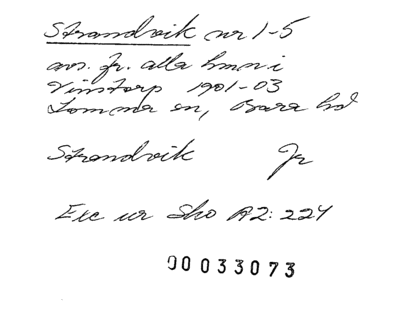 Strandvik nr 1-5
avs. fr. alla hmn i
Vinstorp 1901-03
Lomma sn, Bara hd
Strandvik Jr
Exc ur Sho A2: 224
00033073